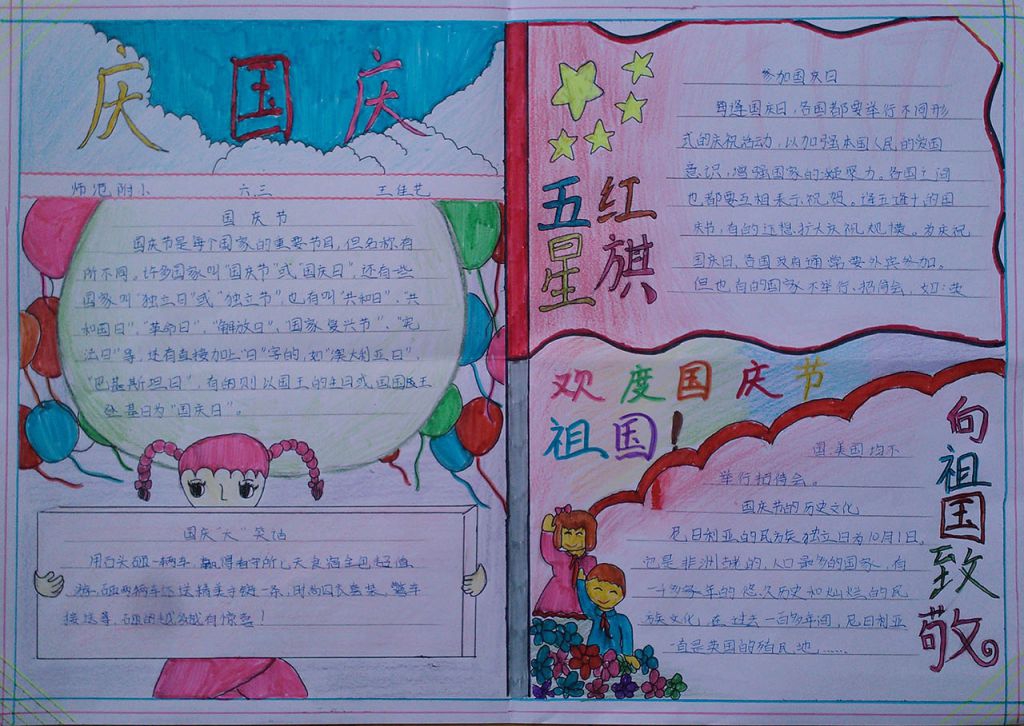 庆国庆
师范附小 六三 王佳艺
国庆节
国庆节是每个国家的重要节日,但名称有
所不同。许多国家叫"国庆节"或"国庆日",还有些
国家叫"独立日"或"独立节",也有叫"共和日"、"共
和国日"、"革命日"、"解放日"、"国家复兴节"、"宪
法日"等,还有直接加上"日"字的,如"澳大利亚日"、
"巴基斯坦日",有的则以国王的生日或
基日为"国庆日"。
国庆"大"笑话
用石头砸一辆车
砸两辆车还送精美手链一条,时尚囚衣套装,警车
接送等,砸的越多越有惊喜!
五星
红旗
参加国庆日
每逢国庆日,各国都要举行不同形
式的庆祝活动,以加强本国人民的爱国
意识,增强国家的凝聚力。各国之间
也都要互相表示祝贺。逢五逢十的国
庆节,有的还想扩大庆祝规模。为庆祝
国庆日,各国政府通常要外宾参加。
但也有的国家不举行招待会,如:美
欢度国庆节
祖国!
向祖国致敬
国、美国均不
举行招待会。
国庆节的历史文化
尼日利亚的民族独立日为10月1日。
它是非洲的,人口最多的国家,有
年的悠久历史和灿烂的民
族文化,在过去一百多年间,尼日利亚
一直是英国的殖民地……